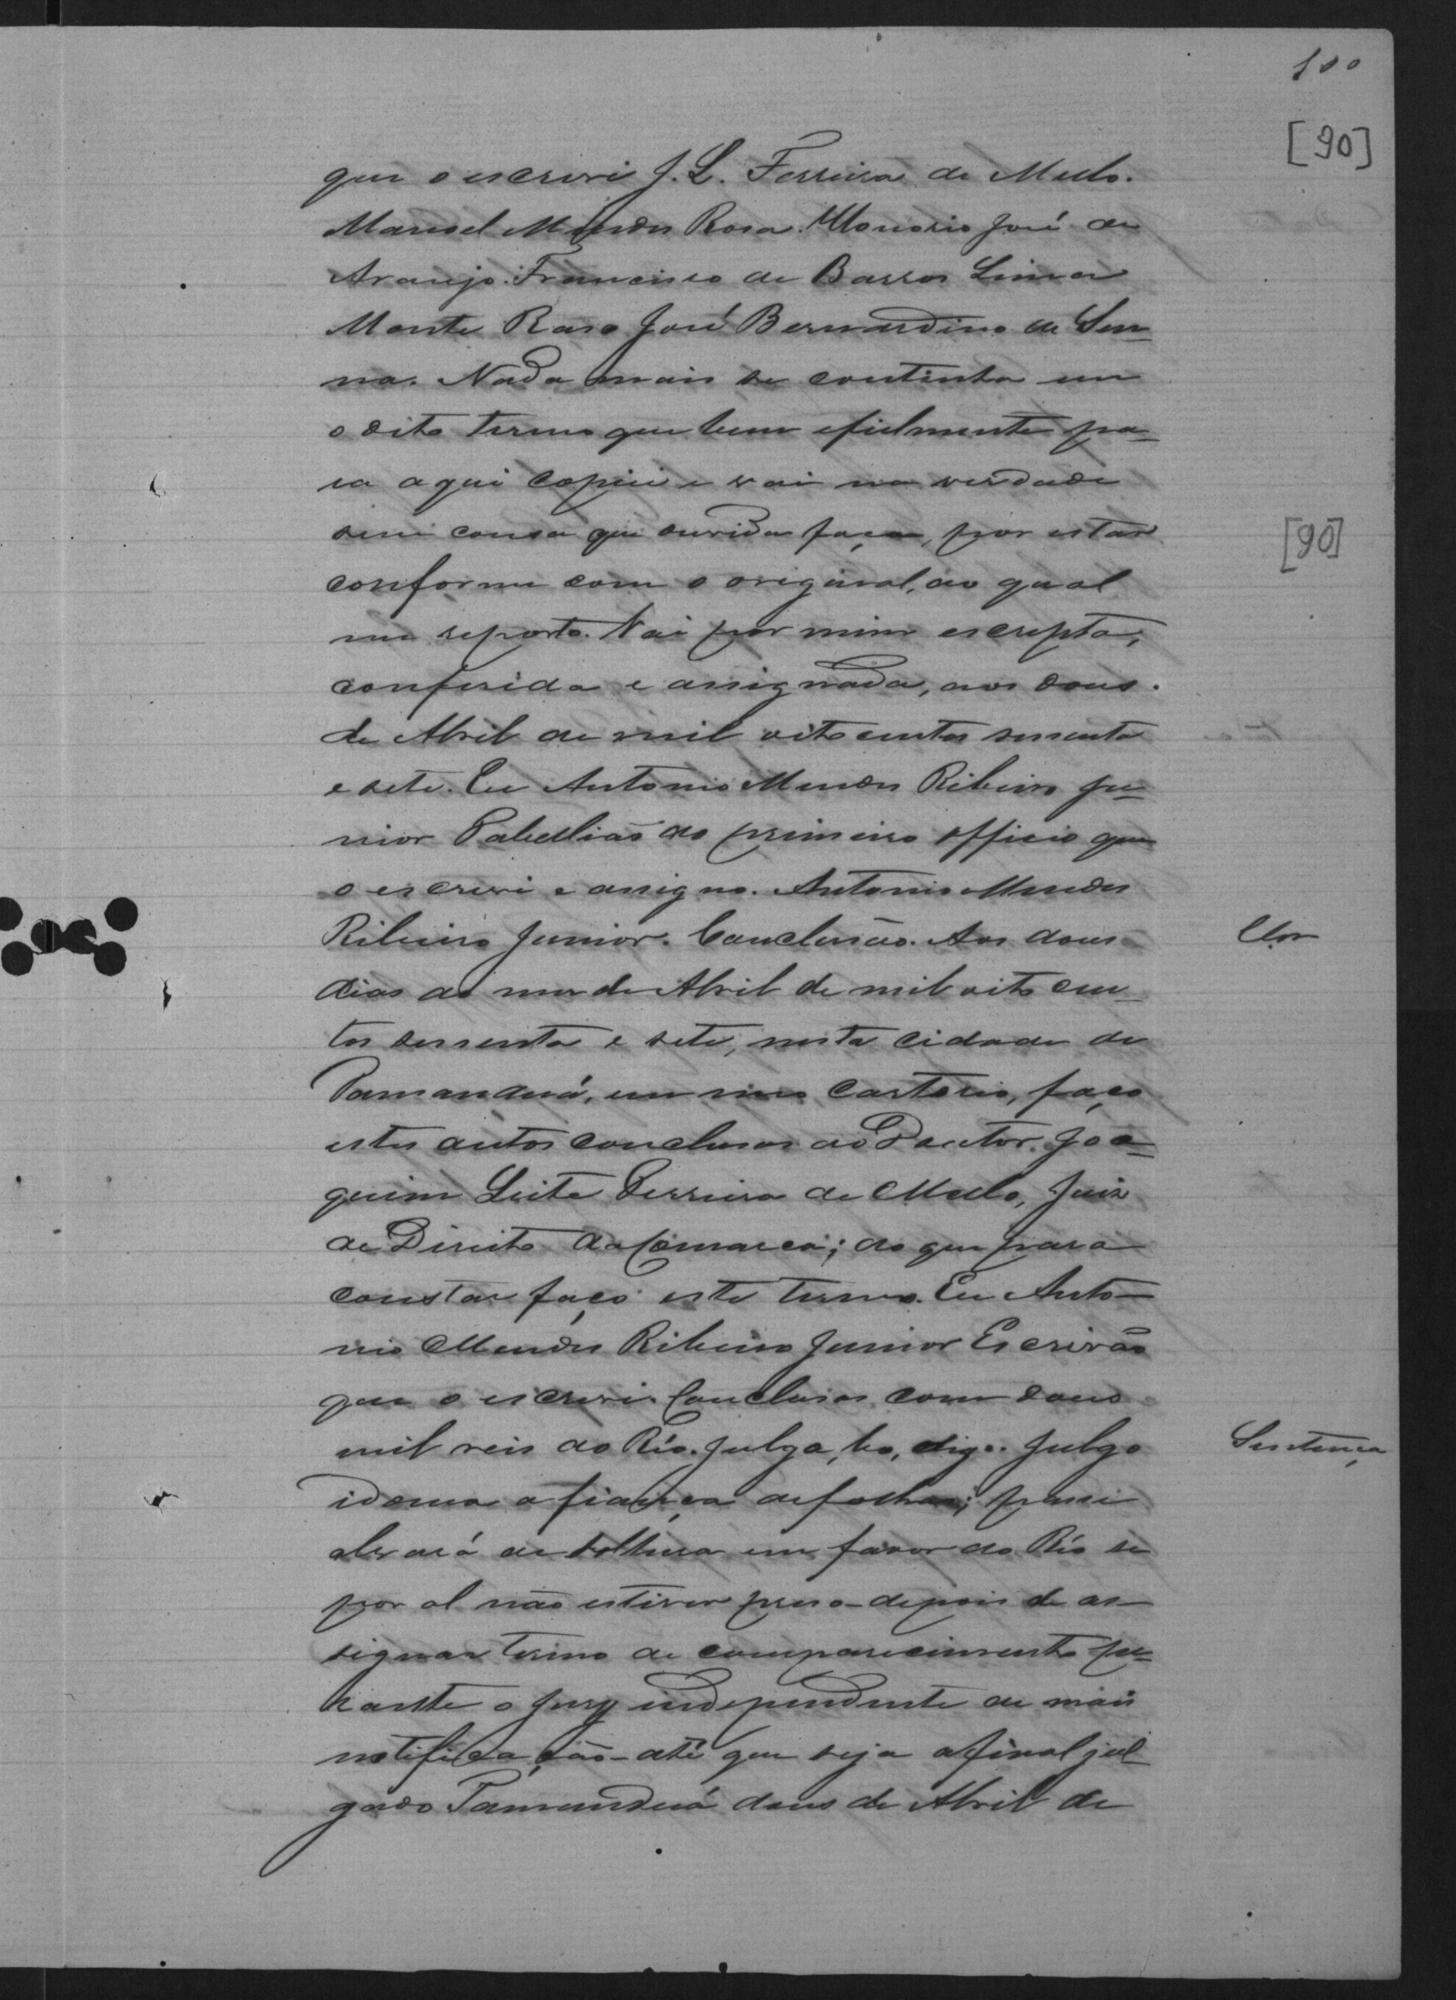 100
[90]
que o escrevi J. L. Ferreira de Mello.
Manoel Mendes Rosa. Honorio José de
Araujo. Francisco de Barros Lima
Monte Raso José Bernardino de Sen-
na. Nada mais se continha em
o dito termo que bem e fielmente pa-
ra aqui copiei e vai na verdade
sem cousa que duvida faça, por estar
[90]
conforme com o original, ao qual
me reporto. Vai por mim escripta,
conferida e assignada, aos dous
de Abril de mil oito centos sessenta
e sete. Eu Antonio Mendes Ribeiro Ju-
nior Tabellião do primeiro officio que
o escrevi e assigno. Antonio Mendes
Ribeiro Junior. Conclusão. Aos dous
Clsm
dias do mes de Abril de mil oito cen-
tos sessenta e sete, nesta cidade de
Tamanduá, em meo cartorio, faço
estes autos conclusos ao Doutor Joa-
quim Leite Ferreira de Mello, Juiz
de Direito da Comarca; do que para
constar faço este termo. Eu Anto-
nio Mendes Ribeiro Junior Escrivão
que o escrevi. Conclusos com dous
mil reis do Réo. Julga, ho, digo. Julgo
Sentença
idonea a fiança de folhas; passe
alvará de soltura em favor do Réo se
por al não estiver preso - depois de as-
signar termo de comparecimento pe-
rante o Jury independente de mais
notificação - até que seja afinal jul-
gado Tamanduá dous de Abril de